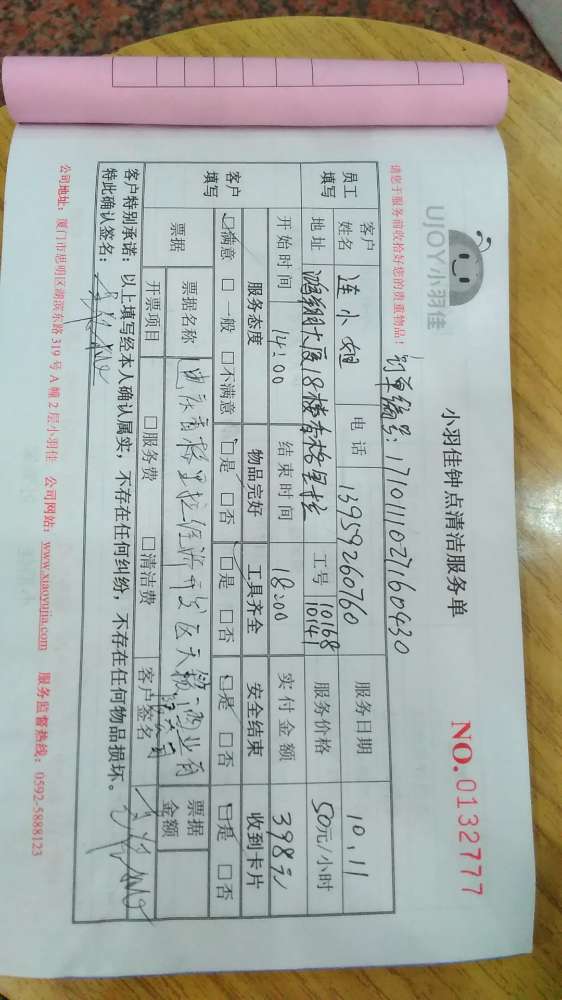 UJOY小羽佳
小羽佳钟点清洁服务单
NO.0132777
请您于服务前收拾好您的贵重物品！
订单编号：17101110271160430
员工填写 客户姓名 连小姐 电话 13959260760 服务日期 10.11
地址 鸿翔大厦18楼香格里拉 工号 10168 10141 服务价格 50元/小时
开始时间 14:00 结束时间 18:00 实付金额 398元
客户填写 服务态度 物品完好 工具齐全 安全结束 收到卡片
☑满意 □一般 □不满意 ☑是 □否 ☑是 □否 ☑是 □否 ☑是 □否
票据 票据名称 迪庆香格里拉经济开发区天 商业有 票据金额
开票项目 □服务费 □清洁费 客户签名
客户特别承诺：以上填写经本人确认属实，不存在任何纠纷，不存在任何物品损坏。
特此确认签名：
公司地址：厦门市思明区湖滨东路319号A幢2层小羽佳 公司网站：www.xiaoyujia.com 服务监督热线：0592-5888123